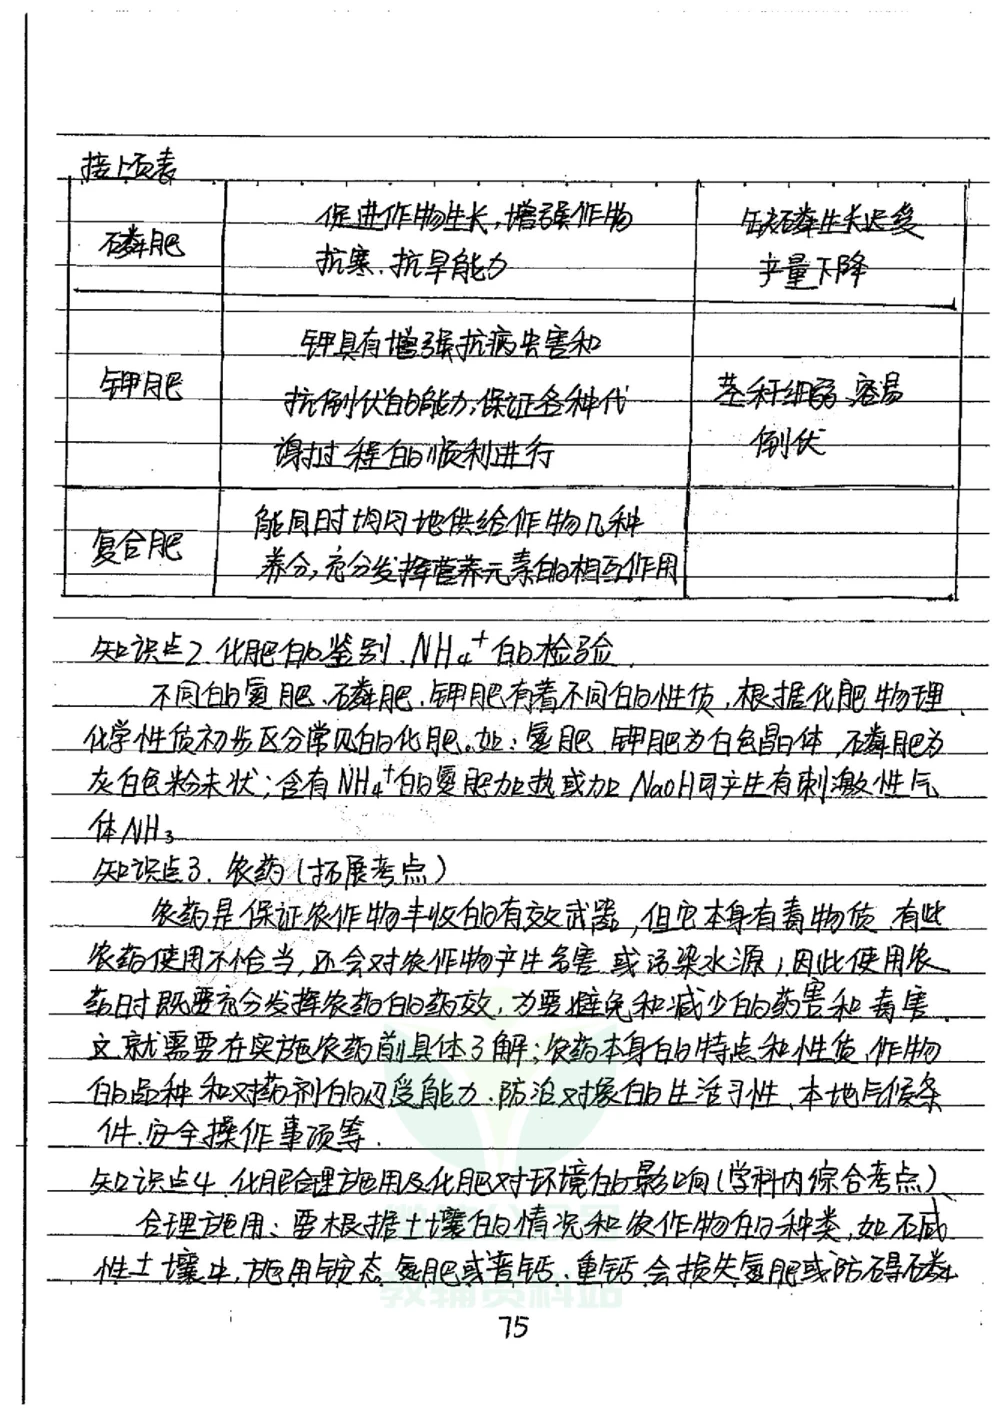 接上页表
磷肥
促进作物生长,增强作物
抗寒、抗旱能力
缺磷生长迟缓
产量下降
钾肥
钾具有增强抗病虫害和
抗倒伏的能力,保证各种代
谢过程的顺利进行
茎秆细弱、容易
倒伏
复合肥
能同时均匀地供给作物几种
养分,充分发挥营养元素的相互作用
知识点2.化肥的鉴别、NH₄⁺的检验
不同的氮肥、磷肥、钾肥有着不同的性质,根据化肥物理、
化学性质初步区分常见的化肥。如:氮肥、钾肥为白色晶体,磷肥为
灰白色粉末状;含有NH₄⁺的氮肥加热或加NaOH可产生有刺激性气
体NH₃
知识点3.农药(拓展考点)
农药是保证农作物丰收的有效武器,但它本身有毒物质,有些
农药使用不恰当,还会对农作物产生危害或污染水源,因此使用农
药时既要充分发挥农药的药效,力要避免和减少的药害和毒害.
这就需要在实施农药前具体了解;农药本身的特点和性质,作物
的品种和对药剂的忍受能力、防治对象的生活习性、本地气候条
件、安全操作事项等.
知识点4.化肥合理施用及化肥对环境的影响(学科内综合考点)
合理施用:要根据土壤的情况和农作物的种类,如石咸
性土壤中,施用铵态氮肥或普钙、重钙会损失氮肥或防碍磷
75
教辅资料站